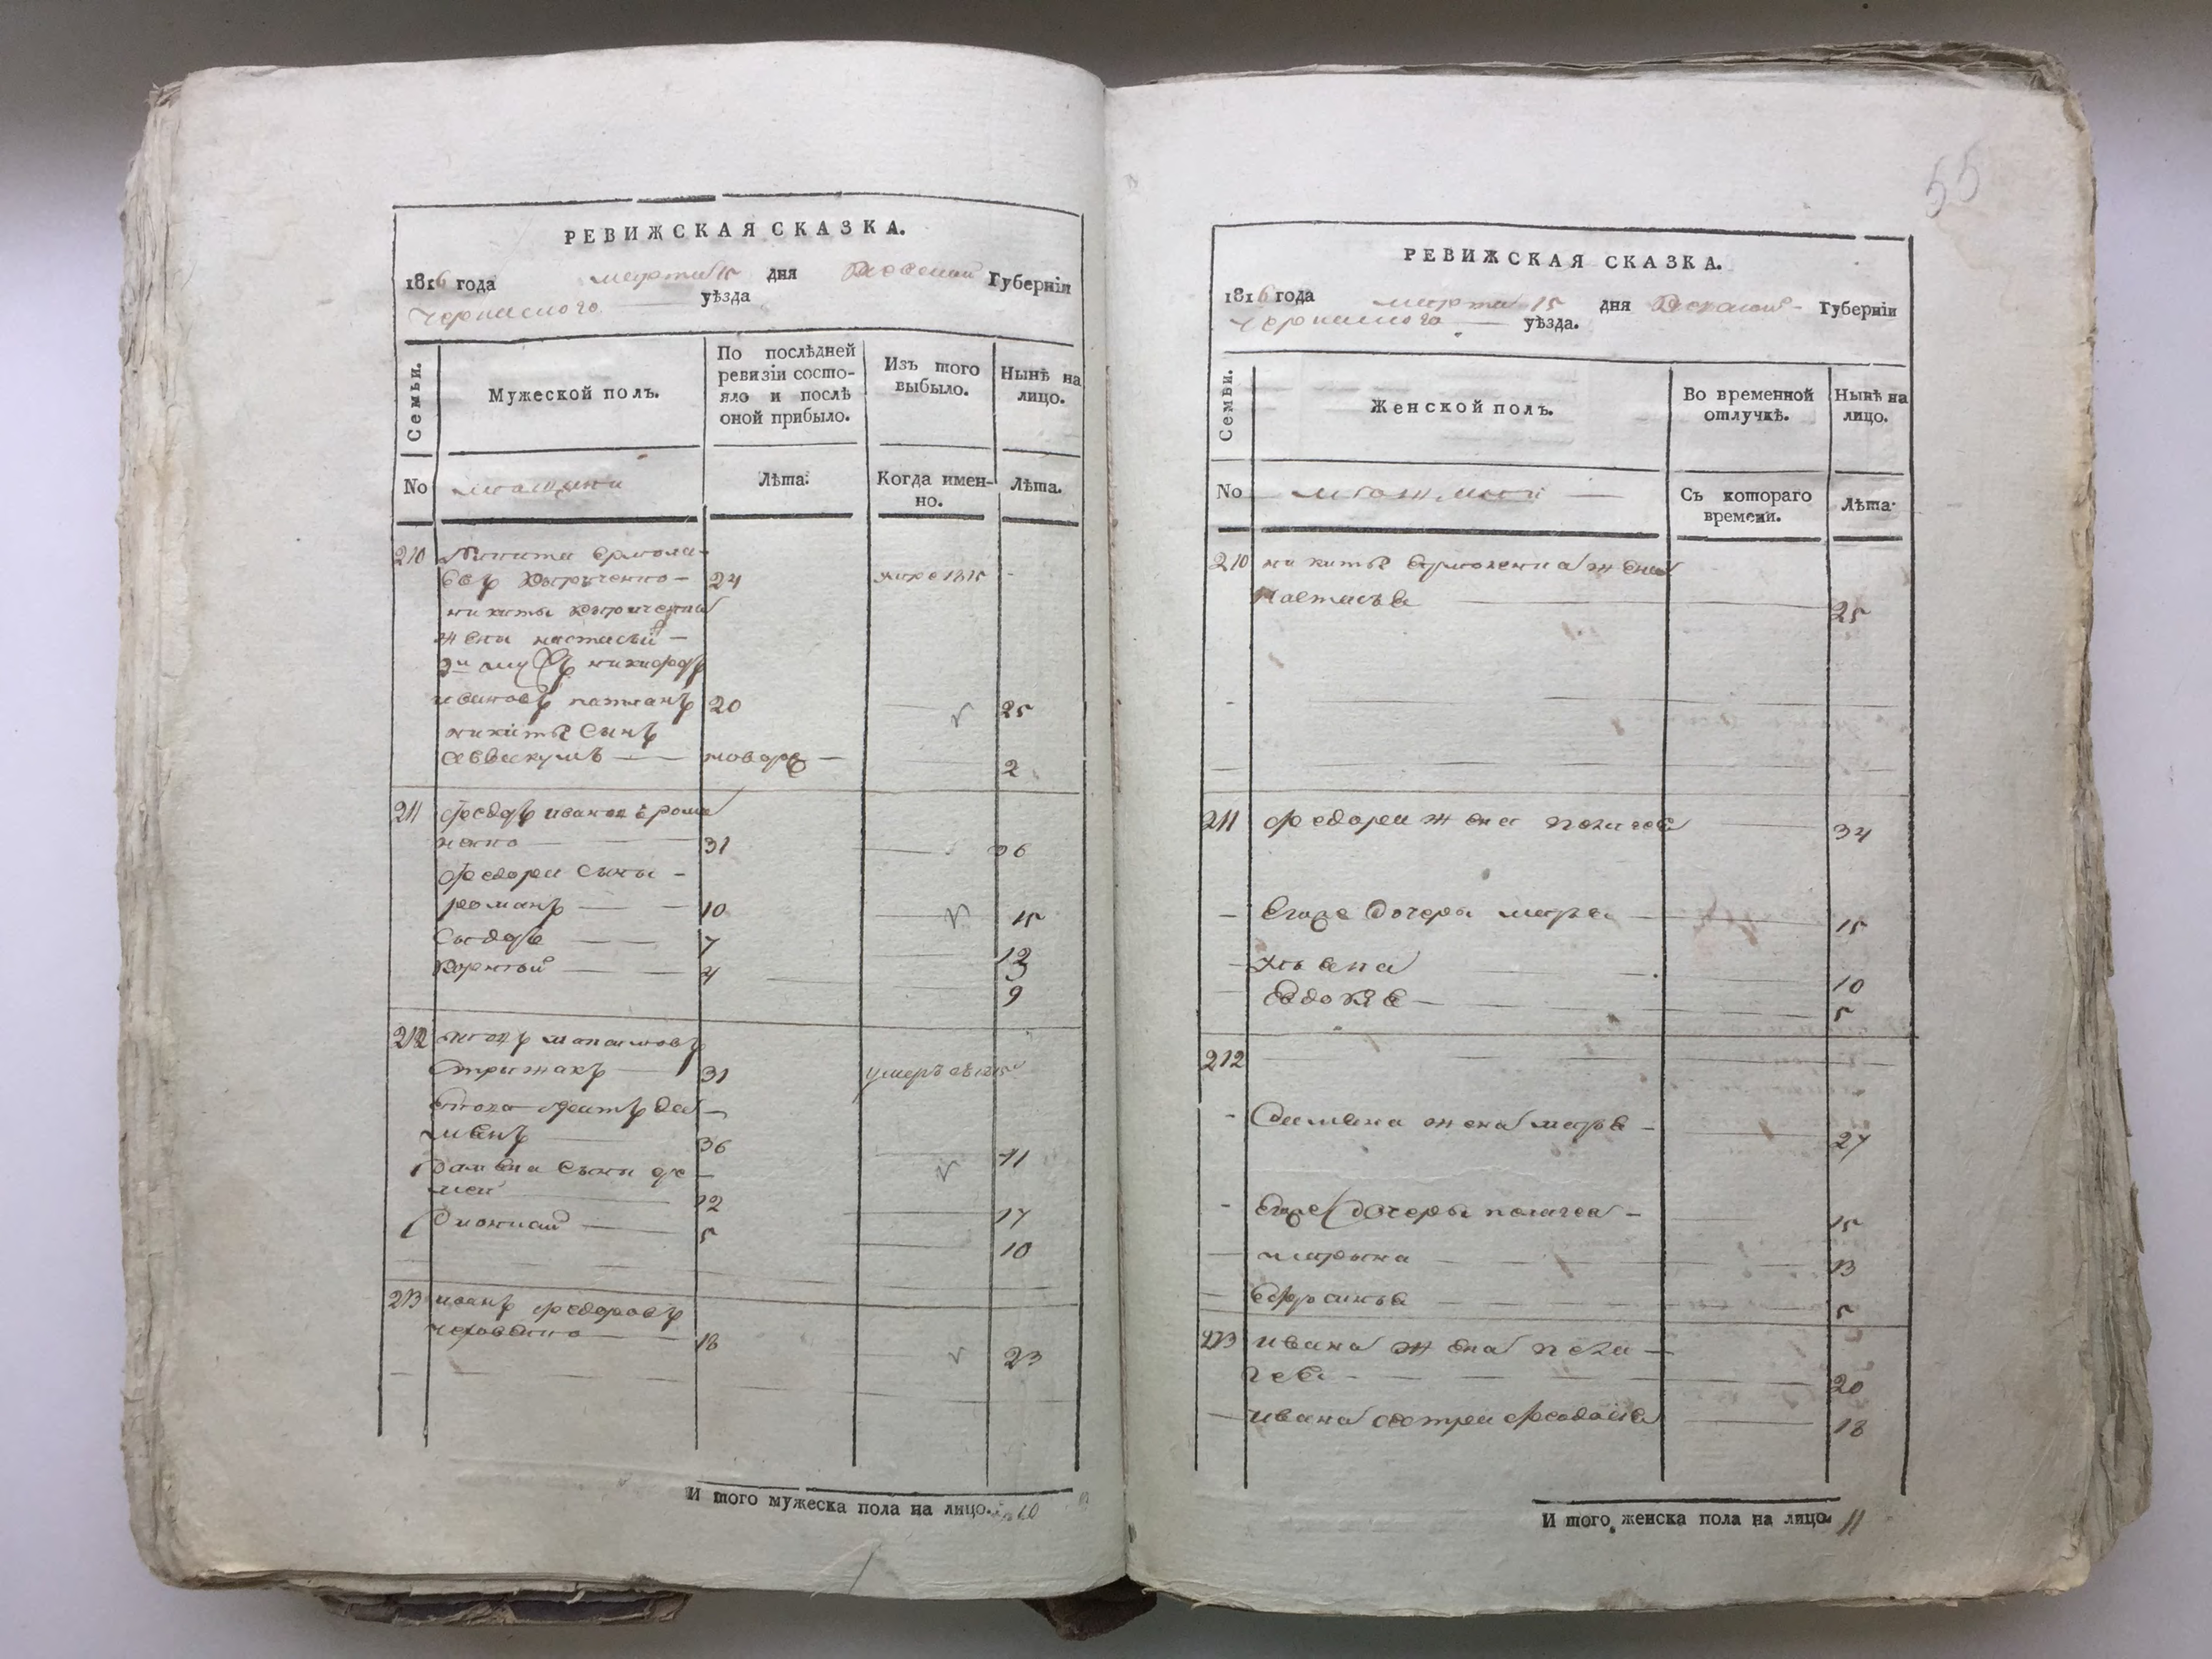 РЕВИЖСКАЯ СКАЗКА.
1816 года марта 15 дня Киевской Губернїи
Черкаскаго уѣзда
Семьи.
Мужеской полъ.
По послѣдней ревизїи состо-
яло и послѣ оной прибыло.
Изъ того выбыло.
Нынѣ на лицо.
No мещани
Лѣта.
Когда имен-
но.
Лѣта.
210 Никита Ермола-
евъ 24 1815
никиты
жена настасьи
2й мужъ никифоръ
ивановъ 20 25
никиты сынъ
Аввакумъ новоро 2
211 Федоръ иванов
31 36
Федора сыны
романъ 10 15
Сидоръ 7 12
Корнѣй 4 9
212
Стрижакъ 31 умеръ въ 1815
Его братъ Да
мьянъ 36 41
Дамьяна сыны
12 17
Дионисий 5 10
213 иванъ федоровъ
18 23
И того мужеска пола на лицо. 10
55
РЕВИЖСКАЯ СКАЗКА.
1816 года марта 15 дня Киевской Губернїи
Черкаскаго уѣзда.
Семьи.
Женской полъ.
Во временной отлучкѣ.
Нынѣ на лицо.
No
Съ котораго времени.
Лѣта.
210 никиты жена
Настасья 25
211 федора жена пелагея 34
Егоже дочери марья 15
10
Евдокія 5
212
Дамьяна жена марья 27
Егоже дочеры пелагея 15
марына 13
Ефросинья 5
213 ивана жена пела
гея 20
ивана сестра Феодосия 18
И того женска пола на лицо 11